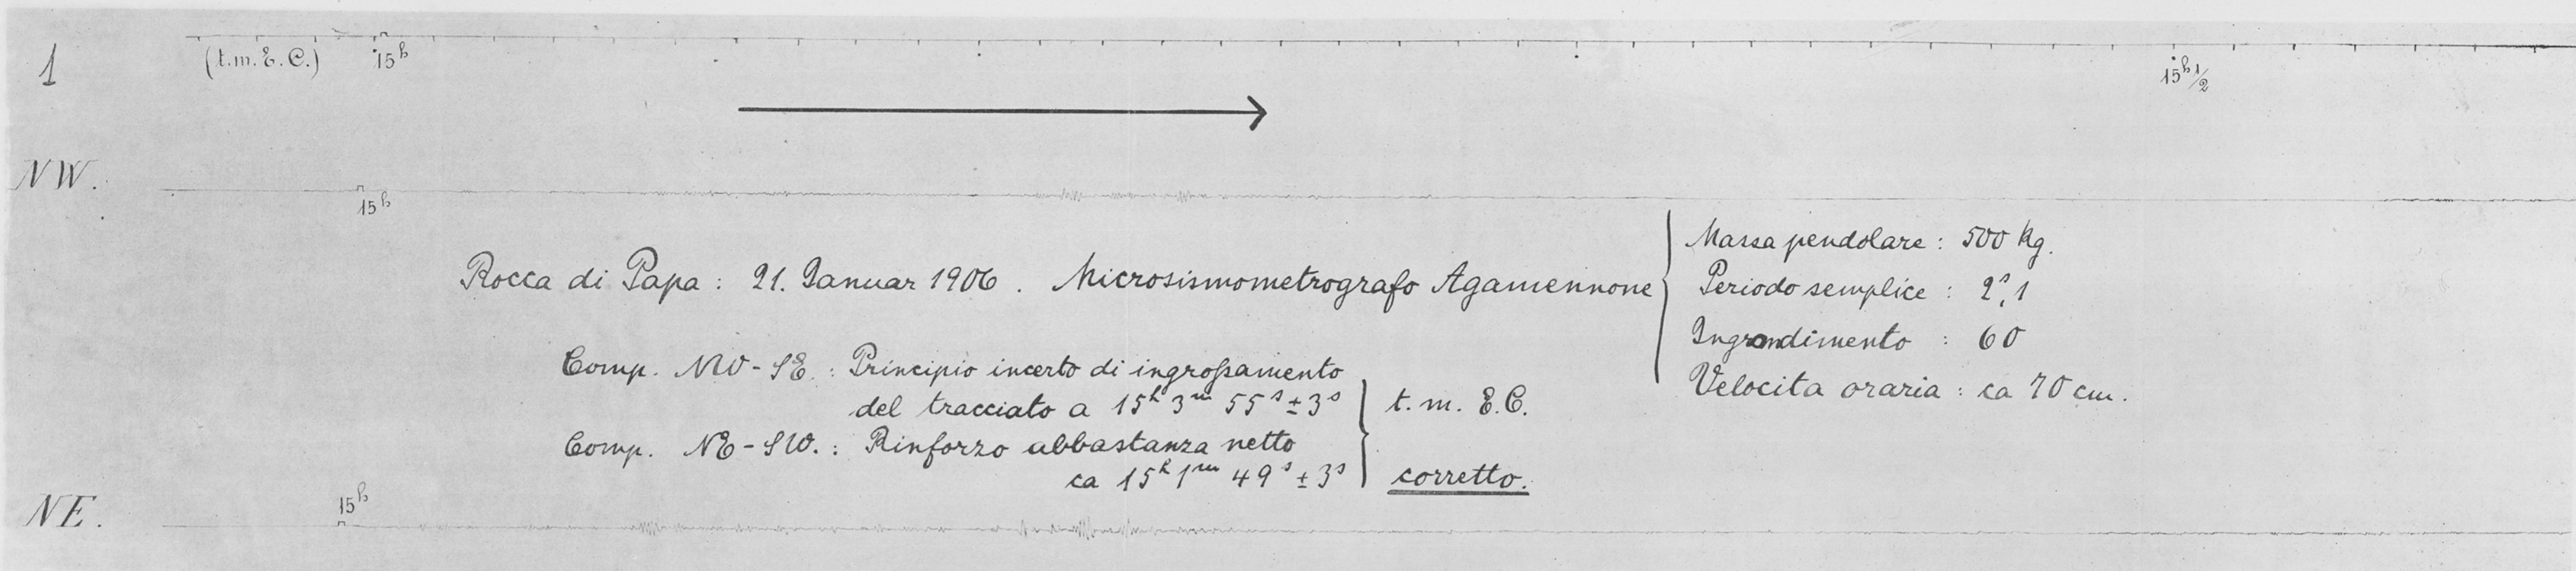 1
(t.m. E. C.) 15h
15h 1/2
NW.
15h
Massa pendolare : 500 kg.
Rocca di Papa : 21. Januar 1906. Microsismometrografo Agamennone
Periodo semplice : 2s,1
Ingrandimento : 60
Velocita oraria : ca 70 cm.
Comp. NW-SE. : Principio incerto di ingrossamento
del tracciato a 15h 3m 55s ± 3s
t. m. E.C.
Comp. NE-SW. : Rinforzo abbastanza netto
ca 15h 1m 49s ± 3s
corretto.
15h
NE.